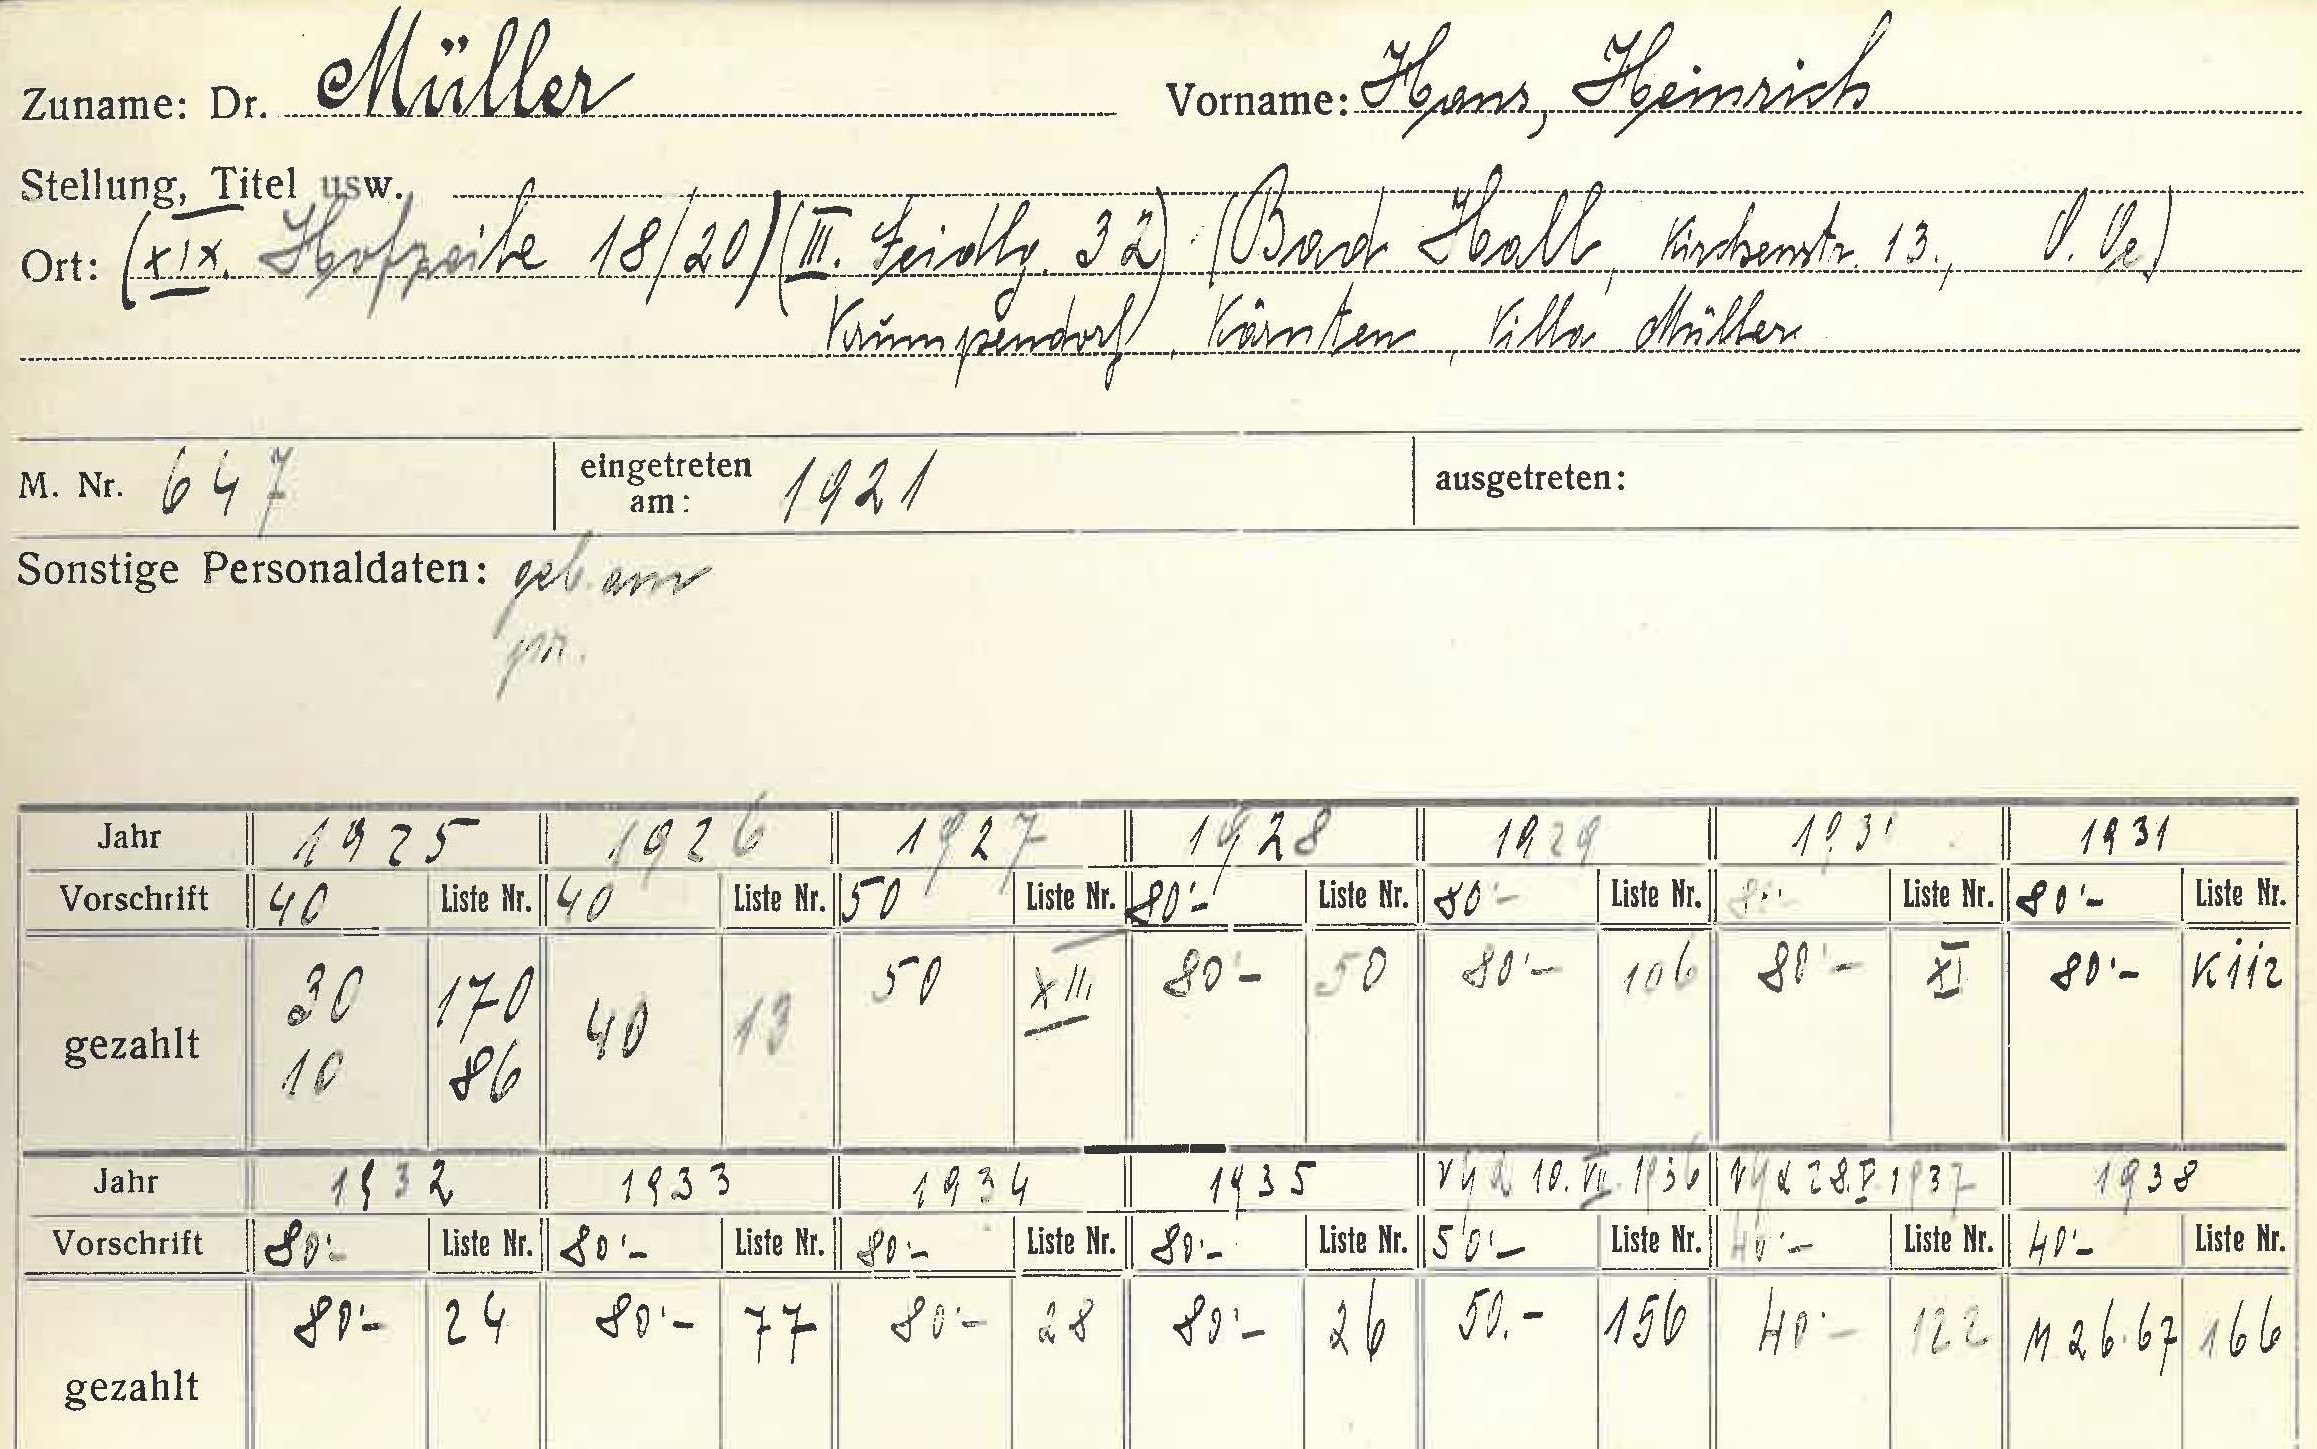 Zuname: Dr. Müller Vorname: Hans, Heinrich
Stellung, Titel usw.
Ort: (XIX. Hofzeile 18/20) (III. 32) (Bad Hall, Kirchenstr. 13., O. Oe)
Krumpendorf, Kärnten, Villa Müller
M. Nr. 647 eingetreten am: 1921 ausgetreten:
Sonstige Personaldaten: geb. am
Jahr 1925 1926 1927 1928 1929 193 1931
Vorschrift 40 Liste Nr. 40 Liste Nr. 50 Liste Nr. 80'- Liste Nr. 80'- Liste Nr. 80'- Liste Nr. 80'- Liste Nr.
gezahlt 30 170 40 13 50 XII. 80'- 50 80'- 106 80'- XI 80'-
10 86
Jahr 1932 1933 1934 1935 10. VII. 1936 28. V. 1937 1938
Vorschrift 80'- Liste Nr. 80'- Liste Nr. 80'- Liste Nr. 80'- Liste Nr. 50'- Liste Nr. 40'- Liste Nr. 40'- Liste Nr.
gezahlt 80'- 24 80'- 77 80'- 28 80'- 26 50.- 156 40'- 122 M 26.67 166